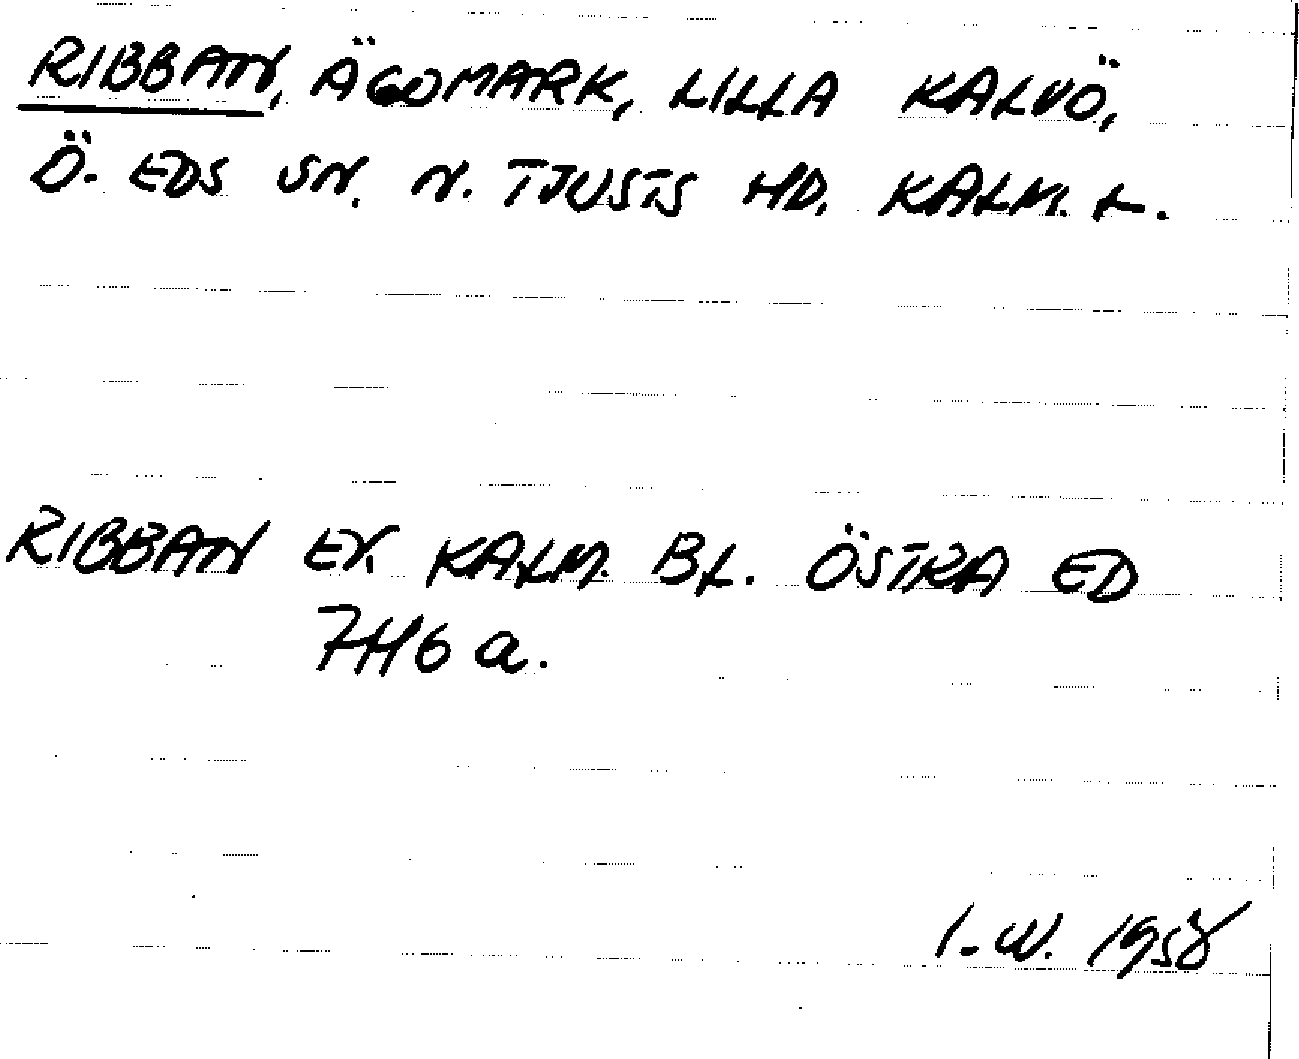 RIBBAN, ÄGOMARK, LILLA KALVÖ,
Ö. EDS SN. N. TJUSTS HD. KALM. L.
RIBBAN EK. KALM. BL. ÖSTRA ED
7H6a.
I.W. 1958